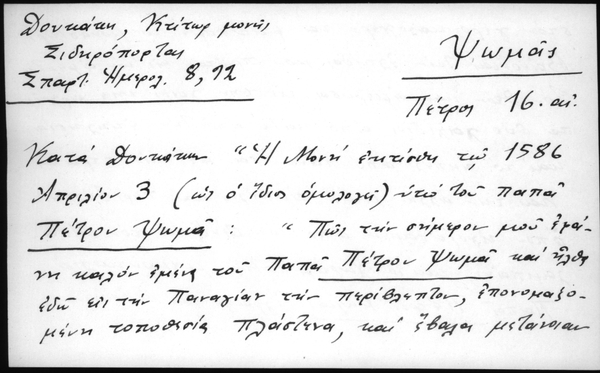 Δουκάκη, Κτίτωρ μονῆς
Σιδηρόπορτας
Σπαρτ. Ἡμερολ. 8, 92
Ψωμᾶς
Πέτρος 16. αἰ.
Κατά Δουκάκην "Ἡ Μονή ἐκτίσθη τῷ 1586
Ἀπριλίου 3 (ὡς ὁ ἴδιος ὁμολογεῖ) ὑπό τοῦ παπᾶ
Πέτρου Ψωμᾶ : "Πῶς τήν σήμερον μοῦ ἐφά-
νη καλόν ἐμένα τοῦ Παπᾶ Πέτρου Ψωμᾶ καί ἦλθα
ἐδῶ εἰς τήν Παναγίαν τήν περίβλεπτον, ἐπονομαζο-
μένη τοποθεσία Πλάστενα, καί ἔβαλα μετάνοιαν